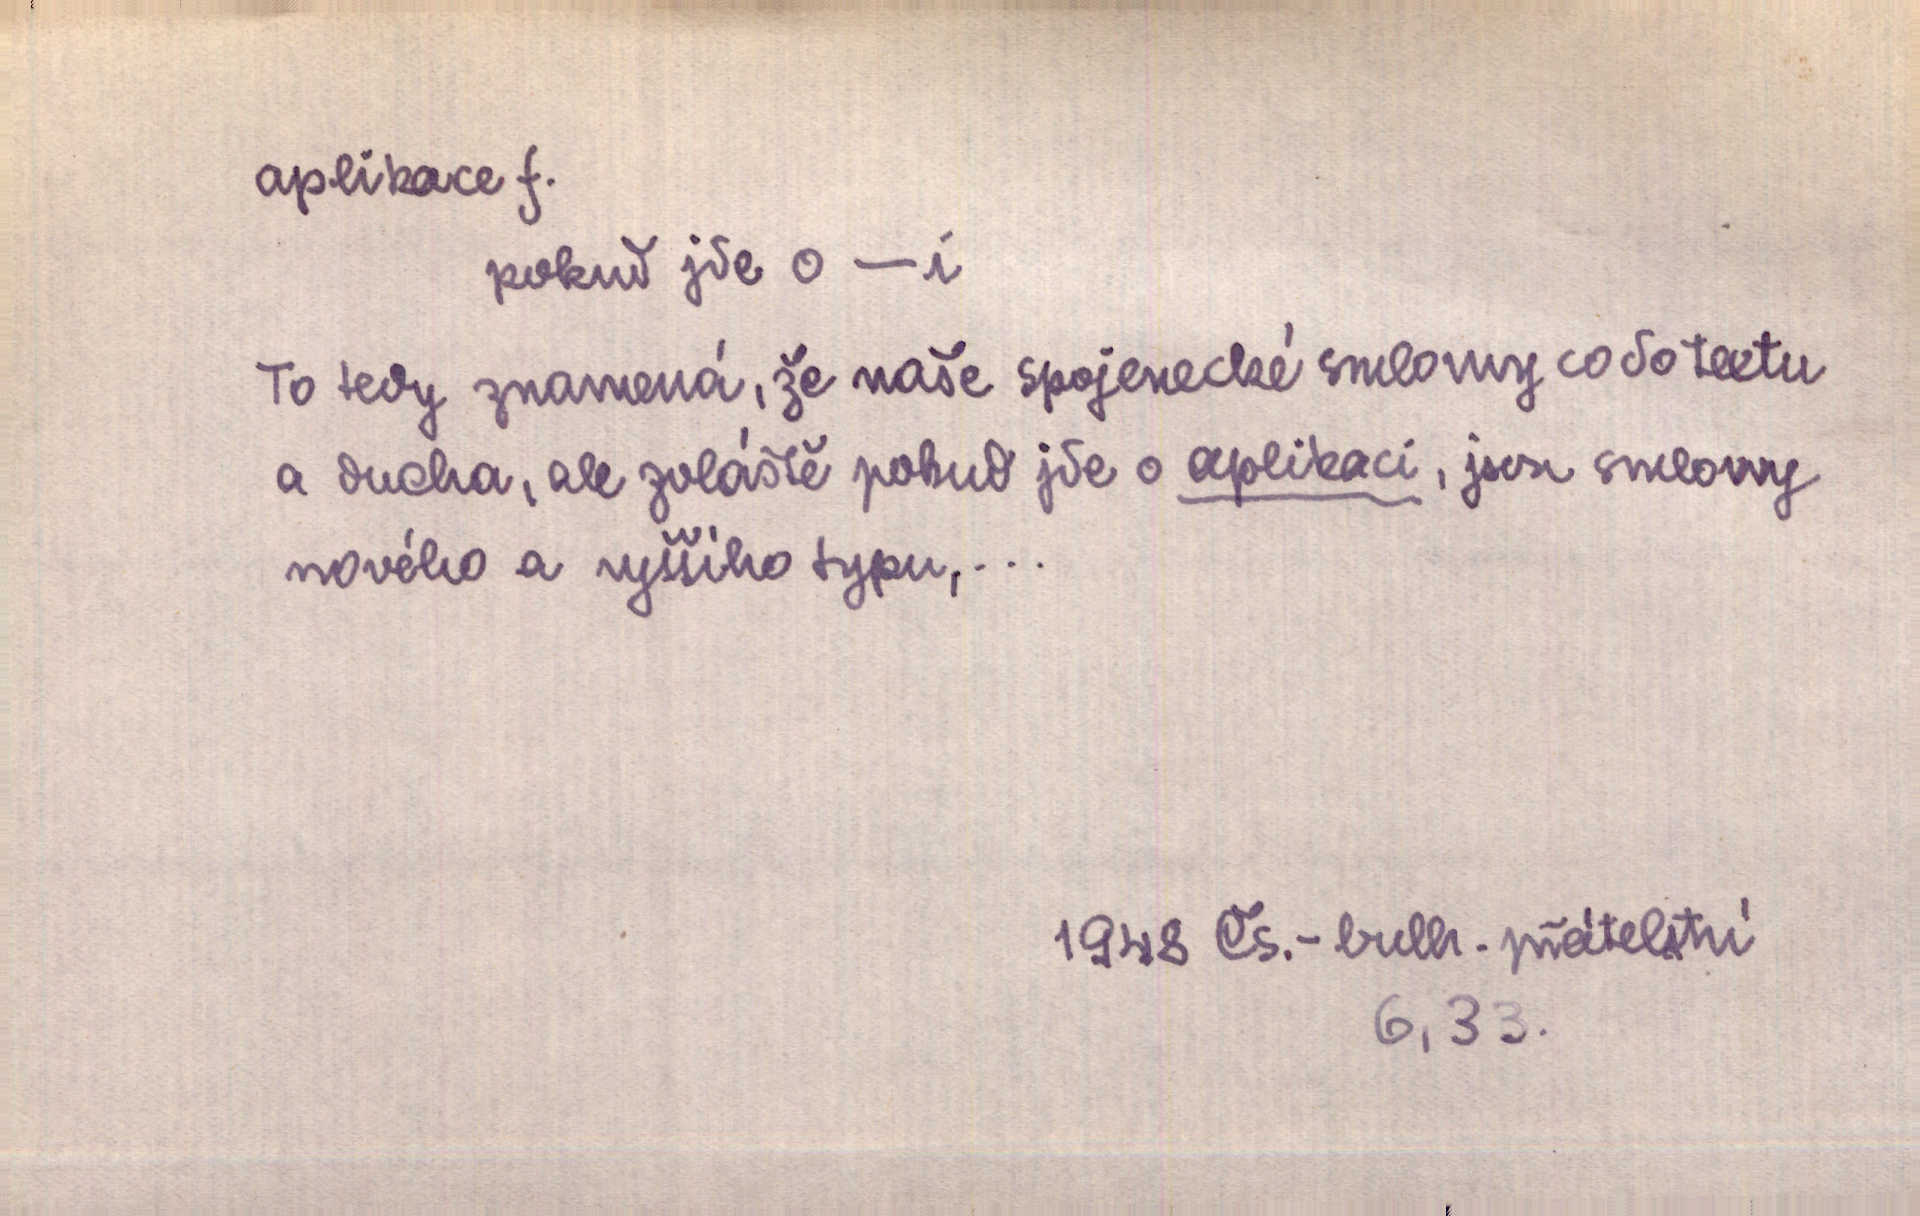 aplikace f.
pokud jde o —i
To tedy znamená, že naše spojenecké smlouvy co do textu
a ducha, ale zvláště pokud jde o aplikaci, jsou smlouvy
nového a vyššího typu,...
1948 Čs.-bulh. přátelství
6, 33.